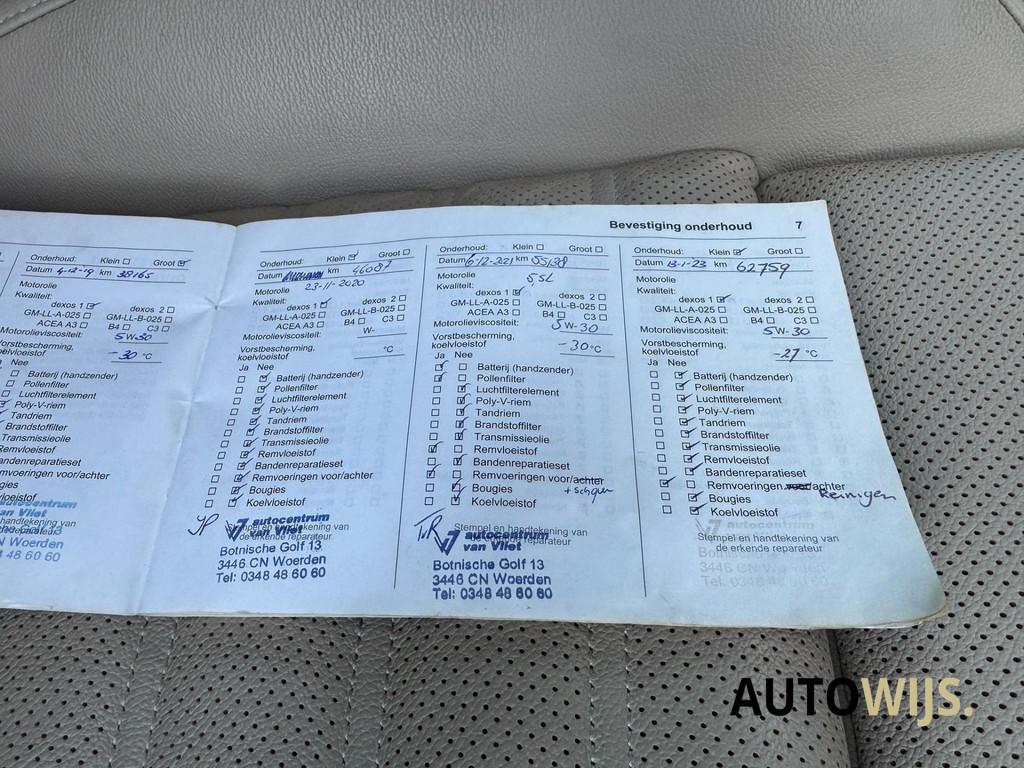 Bevestiging onderhoud 7
Onderhoud: Klein Groot
Datum 4-12-19 km 38165
Motorolie
Kwaliteit:
dexos 1 dexos 2
GM-LL-A-025 GM-LL-B-025
ACEA A3 B4 C3
Motorolieviscositeit:
5W-30
Vorstbescherming,
koelvloeistof
-30 °C
Ja Nee
Batterij (handzender)
Pollenfilter
Luchtfilterelement
Poly-V-riem
Tandriem
Brandstoffilter
Transmissieolie
Remvloeistof
Bandenreparatieset
Remvoeringen voor/achter
Bougies
Koelvloeistof
autocentrum
van Vliet
N Woerden
48 60 60
Onderhoud: Klein Groot
Datum km 46007
23-11-2020
Motorolie
Kwaliteit:
dexos 1 dexos 2
GM-LL-A-025 GM-LL-B-025
ACEA A3 B4 C3
Motorolieviscositeit: W-
Vorstbescherming,
koelvloeistof °C
Ja Nee
Batterij (handzender)
Pollenfilter
Luchtfilterelement
Poly-V-riem
Tandriem
Brandstoffilter
Transmissieolie
Remvloeistof
Bandenreparatieset
Remvoeringen voor/achter
Bougies
Koelvloeistof
Stempel en handtekening van
de erkende reparateur
autocentrum
van Vliet
Botnische Golf 13
3446 CN Woerden
Tel: 0348 48 60 60
Onderhoud: Klein Groot
Datum 6-12-2021 km 55138
Motorolie 5,5L
Kwaliteit:
dexos 1 dexos 2
GM-LL-A-025 GM-LL-B-025
ACEA A3 B4 C3
Motorolieviscositeit: 5W-30
Vorstbescherming,
koelvloeistof -30 °C
Ja Nee
Batterij (handzender)
Pollenfilter
Luchtfilterelement
Poly-V-riem
Tandriem
Brandstoffilter
Transmissieolie
Remvloeistof
Bandenreparatieset
Remvoeringen voor/achter
Bougies
Koelvloeistof
TR
Stempel en handtekening van
de erkende reparateur
autocentrum
van Vliet
Botnische Golf 13
3446 CN Woerden
Tel: 0348 48 60 60
Onderhoud: Klein Groot
Datum 13-1-23 km 62759
Motorolie
Kwaliteit:
dexos 1 dexos 2
GM-LL-A-025 GM-LL-B-025
ACEA A3 B4 C3
Motorolieviscositeit: 5W-30
Vorstbescherming,
koelvloeistof -27 °C
Ja Nee
Batterij (handzender)
Pollenfilter
Luchtfilterelement
Poly-V-riem
Tandriem
Brandstoffilter
Transmissieolie
Remvloeistof
Bandenreparatieset
Remvoeringen voor/achter
Reinigen
Bougies
Koelvloeistof
Stempel en handtekening van
de erkende reparateur
AUTOWIJS.